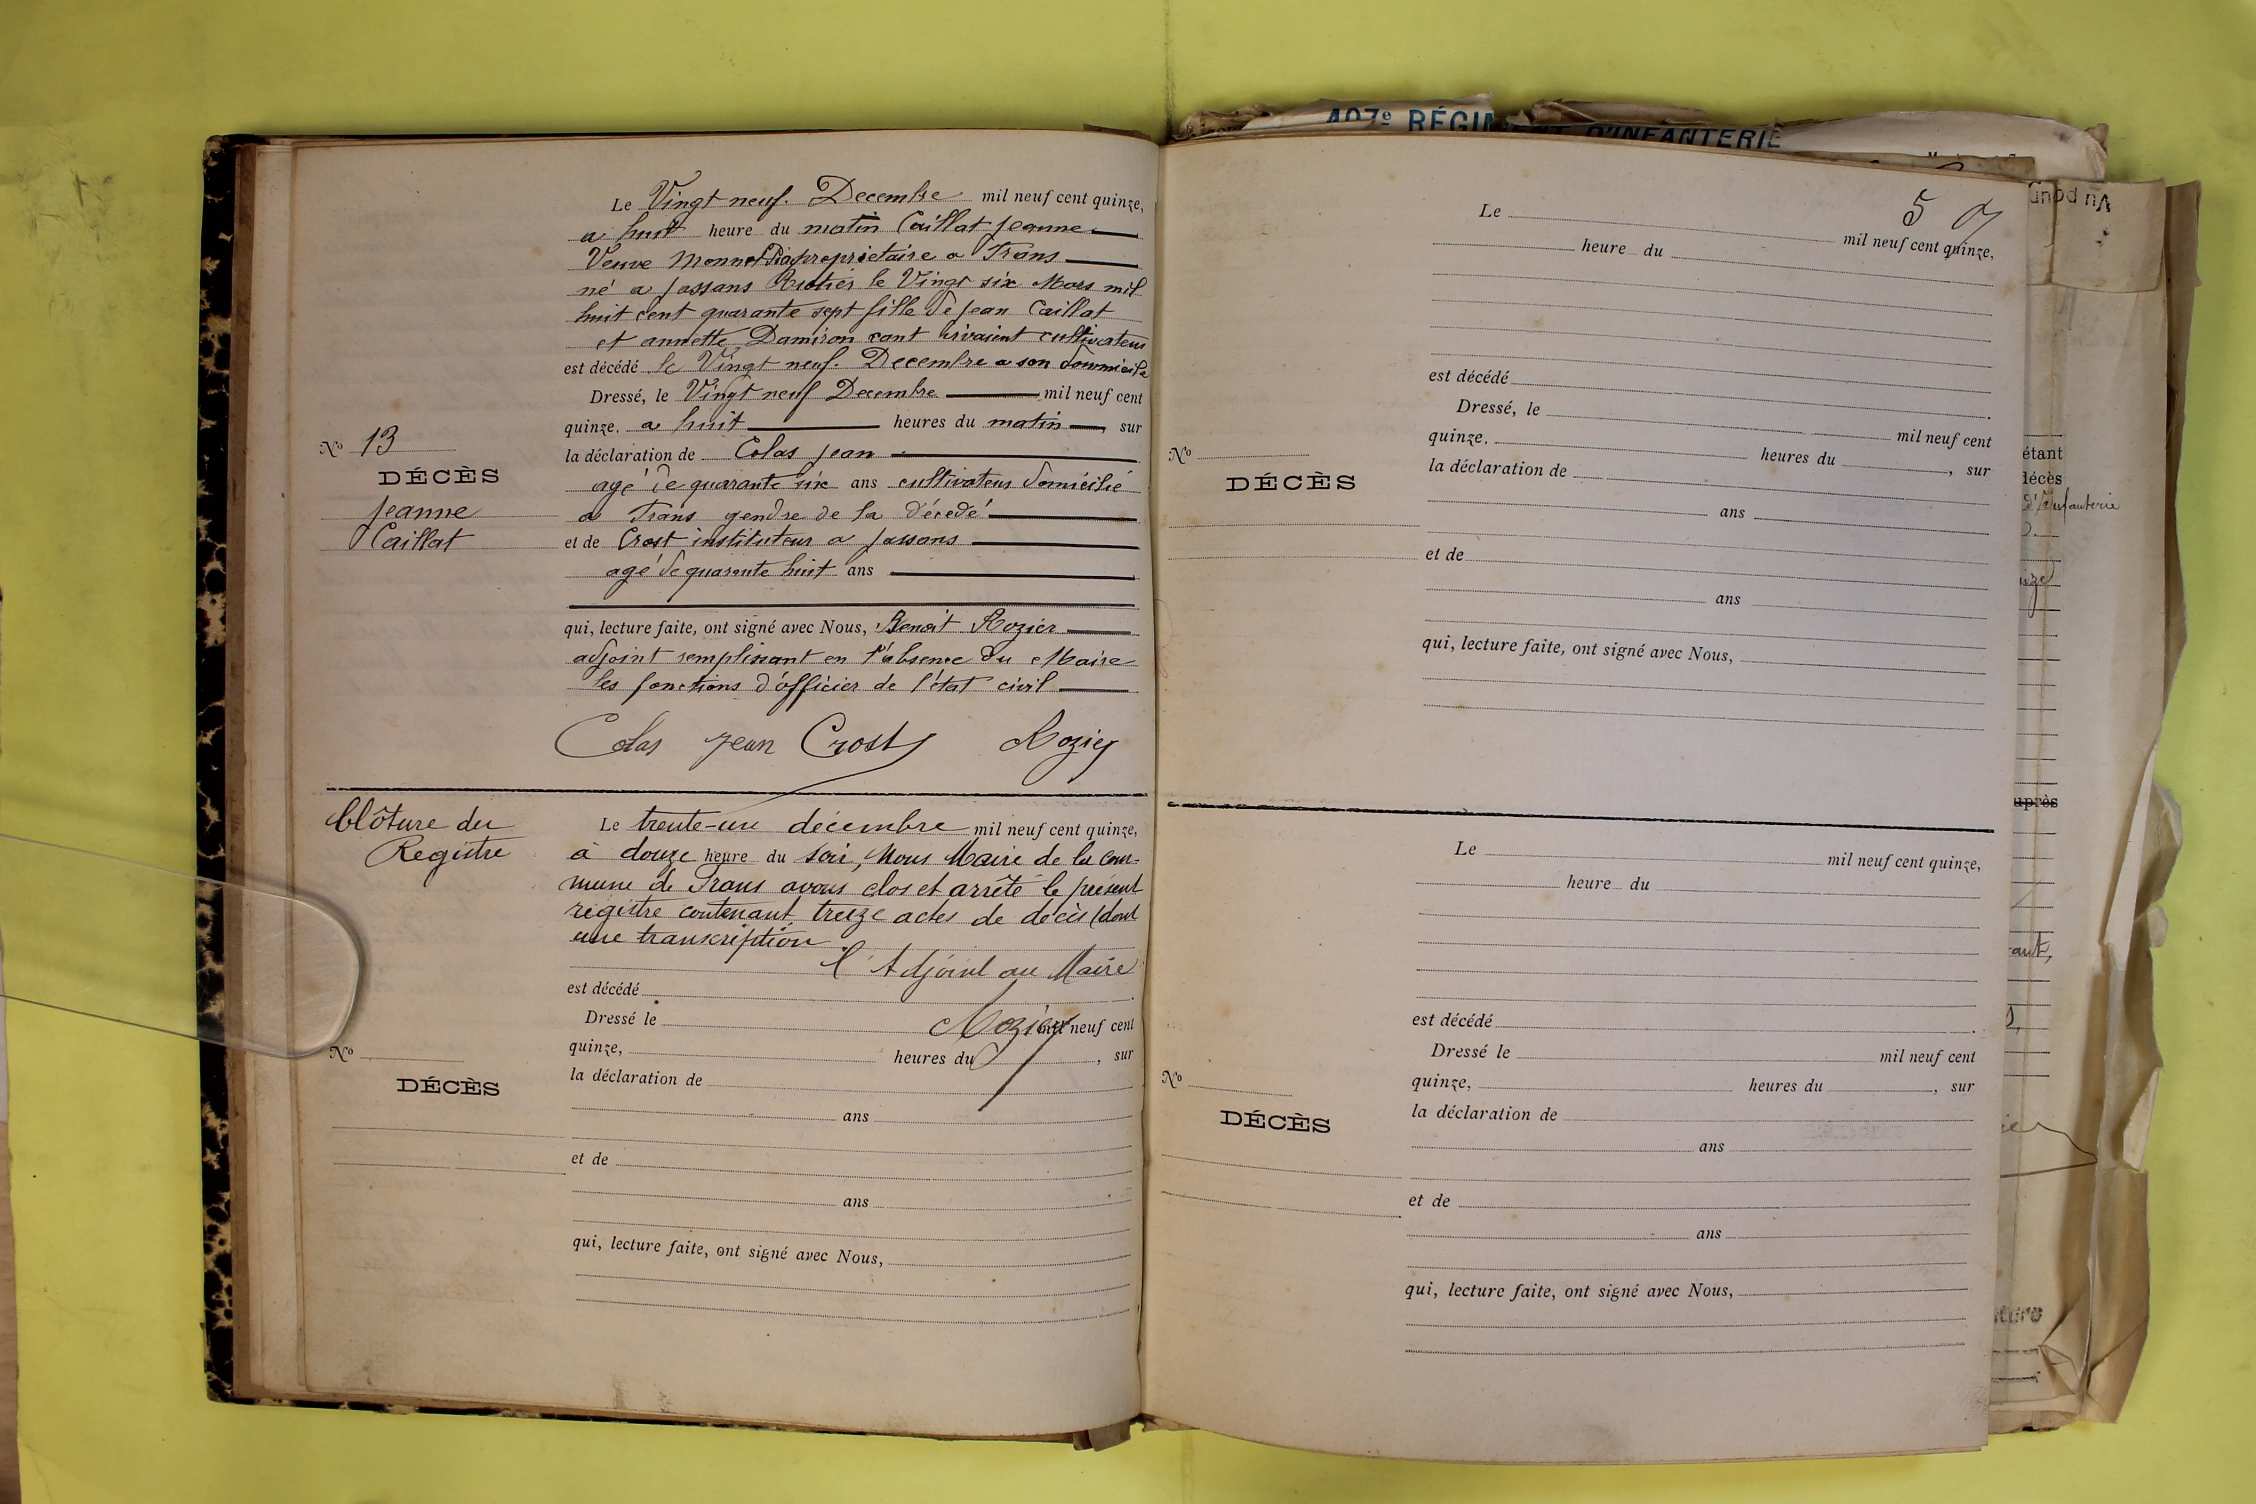 Le Vingt neuf. Decembre mil neuf cent quinze,
a huit heure du matin Caillat Jeanne
Veuve propriétaire a Trans
né a Jassans Riotier le Vingt six Mars mil
huit cent quarante sept fille de Jean Caillat
et annette Damiron vivaient cultivateurs
est décédé le Vingt neuf. Decembre a son dommicile
Dressé, le Vingt neuf Decembre mil neuf cent
quinze, a huit heures du matin, sur
No 13
la déclaration de Colas Jean
DÉCÈS
agé de quarante six ans cultivateur domicilié
Jeanne
a Trans gendre de la décedé
Caillat
et de Crost instituteur a Jassans
agé de quarante huit ans
qui, lecture faite, ont signé avec Nous, Benoit Rozier
adjoint remplissant en l'absence du Maire
les fonctions d'officier de l'état civil
Colas Jean Crost Rozier
Clôture du
Registre
Le trente-un décembre mil neuf cent quinze,
à douze heure du soir, Nous Maire de la com-
mune de Trans avons clos et arrêté le présent
registre contenant treize actes de décès (dont
une transcription.
l'Adjoint au Maire
est décédé
Dressé le mil neuf cent
Rozier
quinze, heures du , sur
No
la déclaration de
DÉCÈS
ans
et de
ans
qui, lecture faite, ont signé avec Nous,
407e RÉGIMENT D'INFANTERIE
5
Le mil neuf cent quinze,
heure du
est décédé
Dressé, le mil neuf cent
quinze, heures du , sur
No
la déclaration de
DÉCÈS
ans
et de
ans
qui, lecture faite, ont signé avec Nous,
Le mil neuf cent quinze,
heure du
est décédé
Dressé le mil neuf cent
quinze, heures du , sur
No
la déclaration de
DÉCÈS
ans
et de
ans
qui, lecture faite, ont signé avec Nous,
Vu pour
étant
décès
d'Infanterie